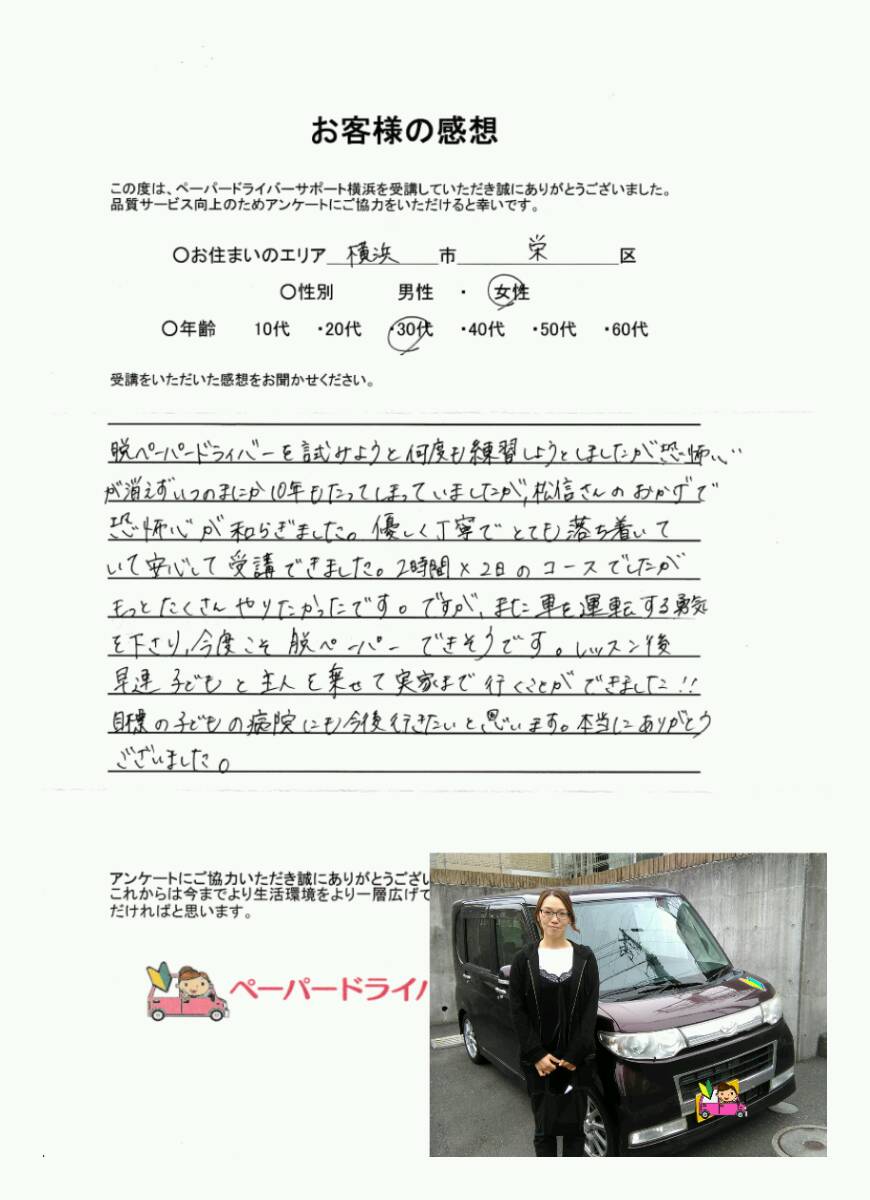 お客様の感想
この度は、ペーパードライバーサポート横浜を受講していただき誠にありがとうございました。
品質サービス向上のためアンケートにご協力をいただけると幸いです。
〇お住まいのエリア 横浜 市 栄 区
〇性別 男性 ・ 女性
〇年齢 10代 ・20代 ・30代 ・40代 ・50代 ・60代
受講をいただいた感想をお聞かせください。
脱ペーパードライバーを試みようと何度も練習しようとしましたが恐怖心
が消えずいつのまにか10年もたってしまっていましたが、松信さんのおかげで
恐怖心が和らぎました。優しく丁寧でとても落ち着いて
いて安心して受講できました。2時間×2日のコースでしたが
もっとたくさんやりたかったです。ですが、また車を運転する勇気
を下さり、今度こそ脱ペーパーできそうです。レッスン後
早速子どもと主人を乗せて実家まで行くことができました!!
目標の子どもの病院にも今後行きたいと思います。本当にありがとう
ございました。
アンケートにご協力いただき誠にありがとうござい
これからは今までより生活環境をより一層広げて
だければと思います。
ペーパードライバ